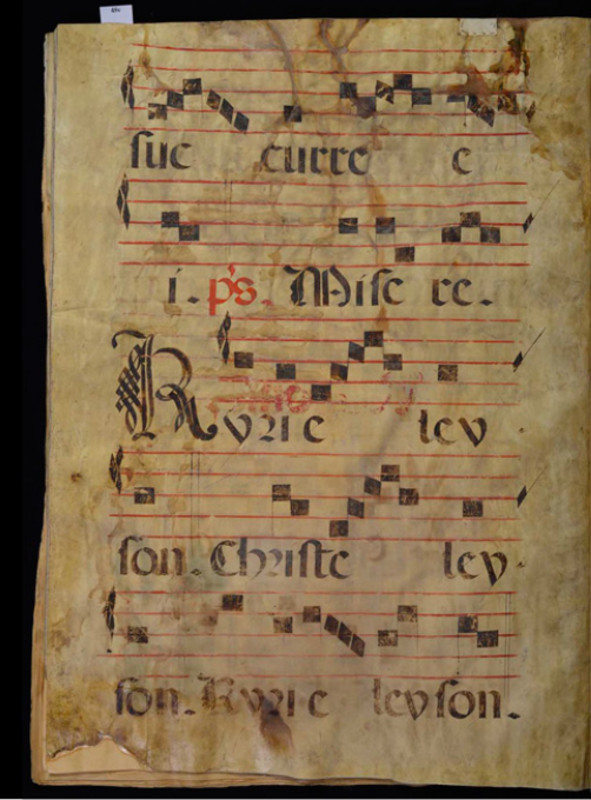 suc curre e
i. ps. Mise re.
Kyrie ley
son. Christe ley
son. Kyrie leyson.